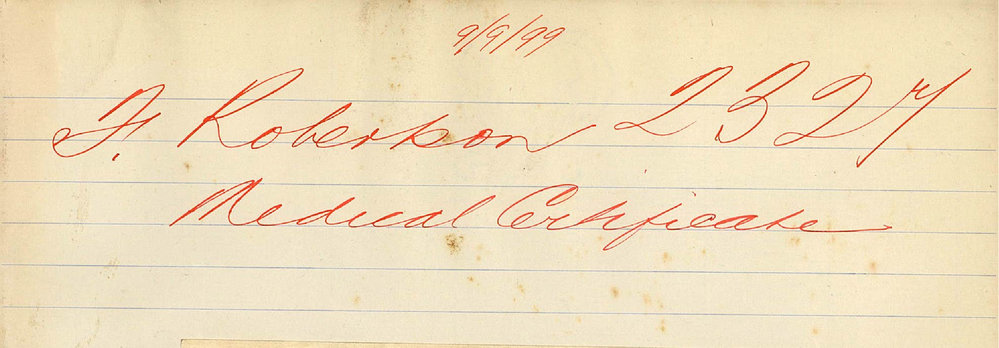 9/9/99
F. Robertson 2327
Medical Certificate